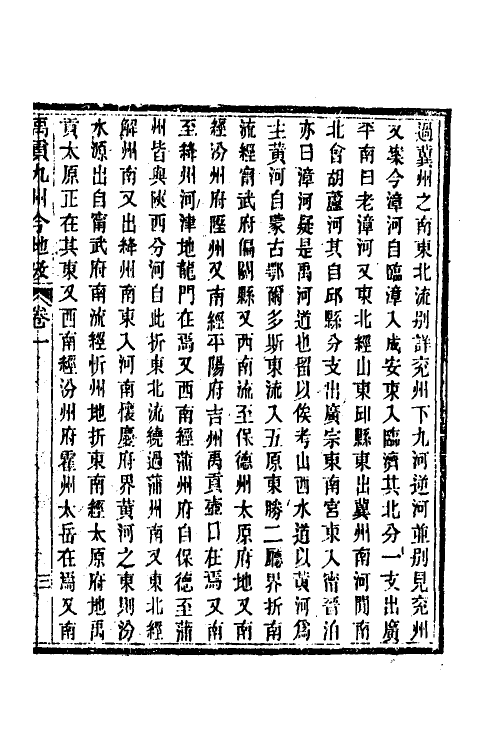 過冀州之南東北流别詳兖州下九河逆河並别見兖州
又案今漳河自臨漳入成安東入臨濟其北分一支出廣
平南曰老漳河又東北經山東邱縣東出冀州南河間南
北會胡蘆河其自邱縣分支出廣宗東南宫東入甯晉泊
亦曰漳河疑是禹河道也留以俟考山西水道以黄河爲
主黄河自蒙古鄂爾多斯東流入五原東勝二廳界折南
流經甯武府偏關縣又西南流至保德州太原府地又南
經汾州府隰州又南經平陽府吉州禹貢壺口在焉又南
至絳州河津地龍門在焉又西南經蒲州府自保德至蒲
州皆與陝西分河自此折東北流繞過蒲州南又東北經
解州南又出絳州南東入河南懷慶府界黄河之東則汾
水源出自甯武府南流經忻州地折東南經太原府地禹
貢太原正在其東又西南經汾州府霍州太岳在焉又南
禹貢九州今地攷 卷一 三